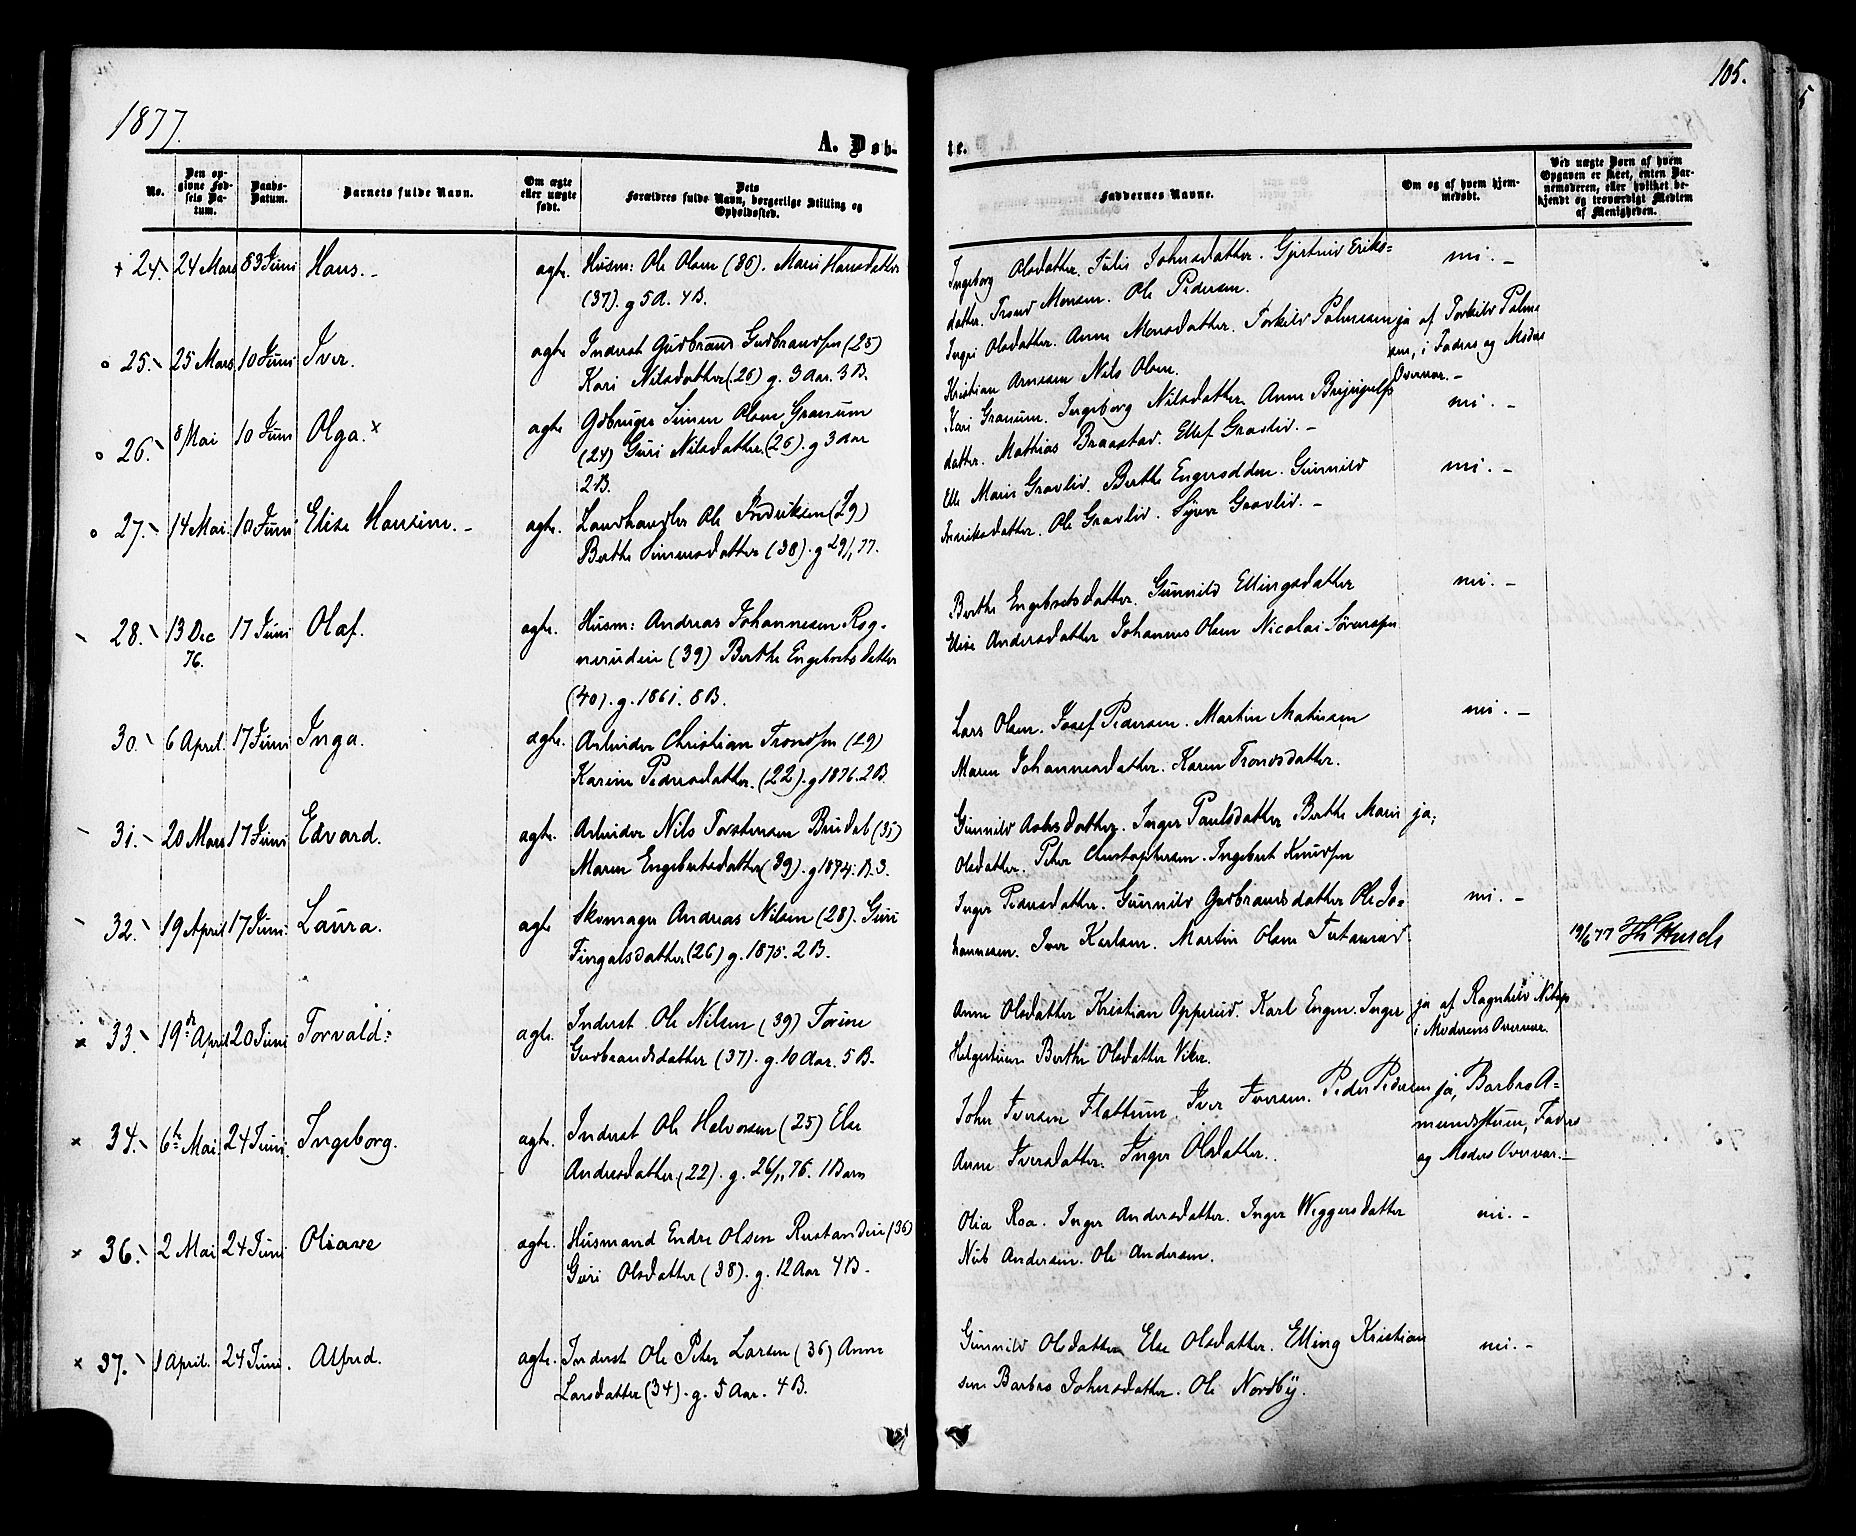 1877.
105.
A. Døb-
te.
No.
Den opgivne Fødsels Datum.
Daabs-Datum.
Barnets fulde Navn.
Om ægte eller uægte født.
Dets Forældres fulde Navn, borgerlige Stilling og Opholdssted.
Faddernes Navne.
Om og af hvem hjemmedøbt.
Ved uægte Børn af hvem Opgaven er skeet, enten Barnemoderen, eller hvilket bekjendt og troværdigt Medlem af Menigheden.
24. 24 Mars 3 Juni Hans. ægte. Husm: Ole Olsen (36). Mari Hansdatter
(37). g 5 A. 4 B.
Ingeborg Olsdatter. Julie Johnsdatter. Gjertrud Eriks=
datter. Trond Monsen. Ole Pedersen.
nei. –
25. 25 Mars 10 Juni Iver. ægte Inderst Gudbrand Gudbrandsen (25)
Kari Nilsdatter (26) g. 3 Aar. 3 B.
Ingri Olsdatter. Anne Monsdatter. Torkild Palmesen
Kristian Arnesen Nils Olsen.
ja af Torkild Palme
sen, i Faders og Moders
Overvær. –
26. 8 Mai 10 Juni Olga. x ægte Gdbruger Simen Olsen Granum
(24) Guri Nilsdatter (26). g 3 Aar
2 B.
Kari Granum. Ingeborg Nilsdatter. Anne
datter. Mathias Braastad. Ellef Gravliv. –
nei. –
27. 14 Mai. 10 Juni Elise Hansine. – ægte. Landhandler Ole Fredriksen (29)
Berthe Simensdatter (38). g 29/1 77.
Else Marie Gravliv. Berthe Engerodden. Gunnild
Fredriksdatter. Ole Gravliv. Syver Gravliv. –
nei. –
28. 13 Dec 76. 17 Juni Olaf. ægte. Husm: Andreas Johannesen Rog-
nerudeie (39) Berthe Engebretsdatter
(40). g. 1861. 8 B.
Berthe Engebretsdatter. Gunnild Ellingsdatter
Elise Andersdatter Johannes Olsen Nicolai Sørensen
nei. –
30. 6 April. 17 Juni Inga. ægte. Arbeider Christian Trondsen (29)
Karine Pedersdatter. (22). g 1876. 2 B.
Lars Olsen. Josef Pedersen. Martin Mathisen
Maren Johannesdatter. Karen Trondsdatter.
nei. –
31. 20 Mars 17 Juni Edvard. ægte. Arbeider Nils Torstensen Brudeb (35)
Maren Engebretsdatter (39). g 1874. B. 3.
Gunnild Aslesdatter. Inger Paulsdatter Berthe Marie
Olsdatter. Peter Christophersen. Ingebret Knudsen
ja;
32. 19 April 17 Juni Laura. ægte Skomager Andreas Nilsen (28). Guri
Fingalsdatter (26) g. 1875. 2 B.
Inger Pedersdatter. Gunnild Gudbrandsdatter Ole Jo=
hannesen. Iver Karlsen. Martin Olsen
nei. –
19/6 77
33. 19de April 20 Juni Torvald. ægte. Inderst Ole Nilsen (39) Torine
Gudbrandsdatter (37). g. 10 Aar. 5 B.
Anne Olsdatter Kristian Opperud. Karl Engen. Inger
Helgestuen Berthe Olsdatter Viker.
ja af Ragnhild Nilsp
i Moderens Overvær.
34. 6te Mai 24 Juni Ingeborg. ægte. Inderst Ole Halvorsen (25) Else
Andersdatter. (22). g. 26/11 76. 1 Barn
John Iversen Flattum. Iver Iversen. Peder Pedersen
Anne Iversdatter. Inger Olsdatter.
ja, Barbro A=
mundstuen, Faders
og Moders Overvær. –
36. 2 Mai 24 Juni Oliave ægte. Husmand Endre Olsen Rustandeie (36)
Guri Olsdatter (38). g. 12 Aar 4 B.
Olia Roa. Inger Andersdatter. Inger Weggersdatter
Nils Andersen. Ole Andersen.
nei. –
37. 1 April. 24 Juni. Alfred. ægte. Inderst Ole Peter Larsen (36) Anne
Larsdatter (34). g. 5 Aar. 4 B.
Gunnild Olsdatter Else Olsdatter. Elling Kristian
sen Barbro Johnsdatter. Ole Nordby.
nei. –